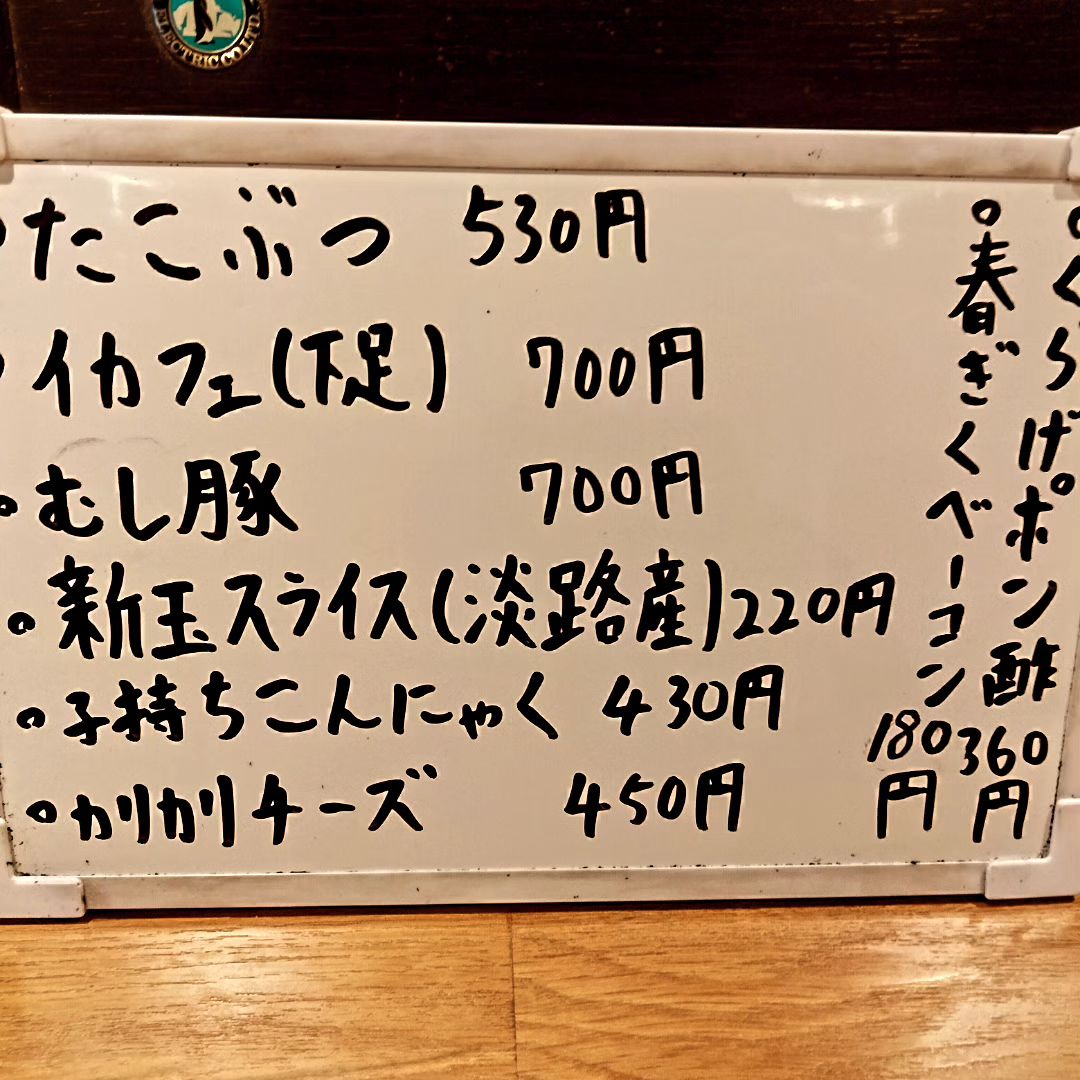 ELECTRIC CO.LTD.
たこぶつ 530円
イカフェ(下足) 700円
むし豚 700円
新玉スライス(淡路産)220円
子持ちこんにゃく 430円
カリカリチーズ 450円
くらげポン酢360円
春ぎくベーコン180円